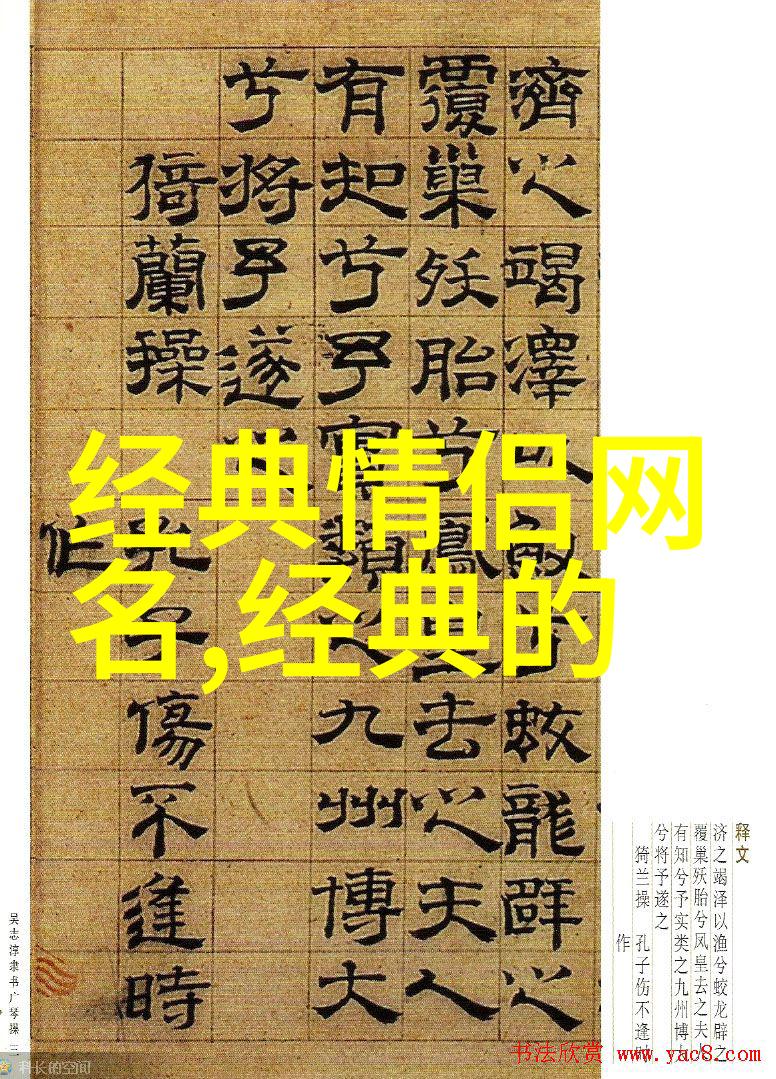 濟之竭澤以漁兮蛟龍辟之
覆巢殀胎兮鳳皇去之夫人
有知兮予寔類之九州博大
兮將予遂之
猗蘭操 孔子傷不逢時
作
经典情侣网
名,经典的
释文
济之竭泽以渔兮蛟龙辟之
覆巢殀胎兮凤皇去之夫
有知兮予实类之九州博
兮将予遂之
猗兰操 孔子伤不逢
作
吴志淳隶书广琴操 三
科长的空间
书法欣赏 www.yac8.com